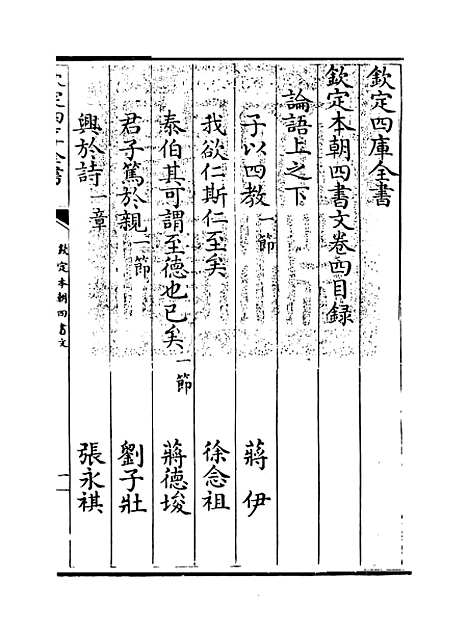 欽定四庫全書
欽定本朝四書文卷四目録
論語上之下
子以四教一節 蔣伊
我欲仁斯仁至矣 徐念祖
泰伯其可謂至德也已矣一節 蔣德埈
君子篤於親一節 劉子壯
興於詩一章 張永祺
欽定四庫全書 欽定本朝四書文 一